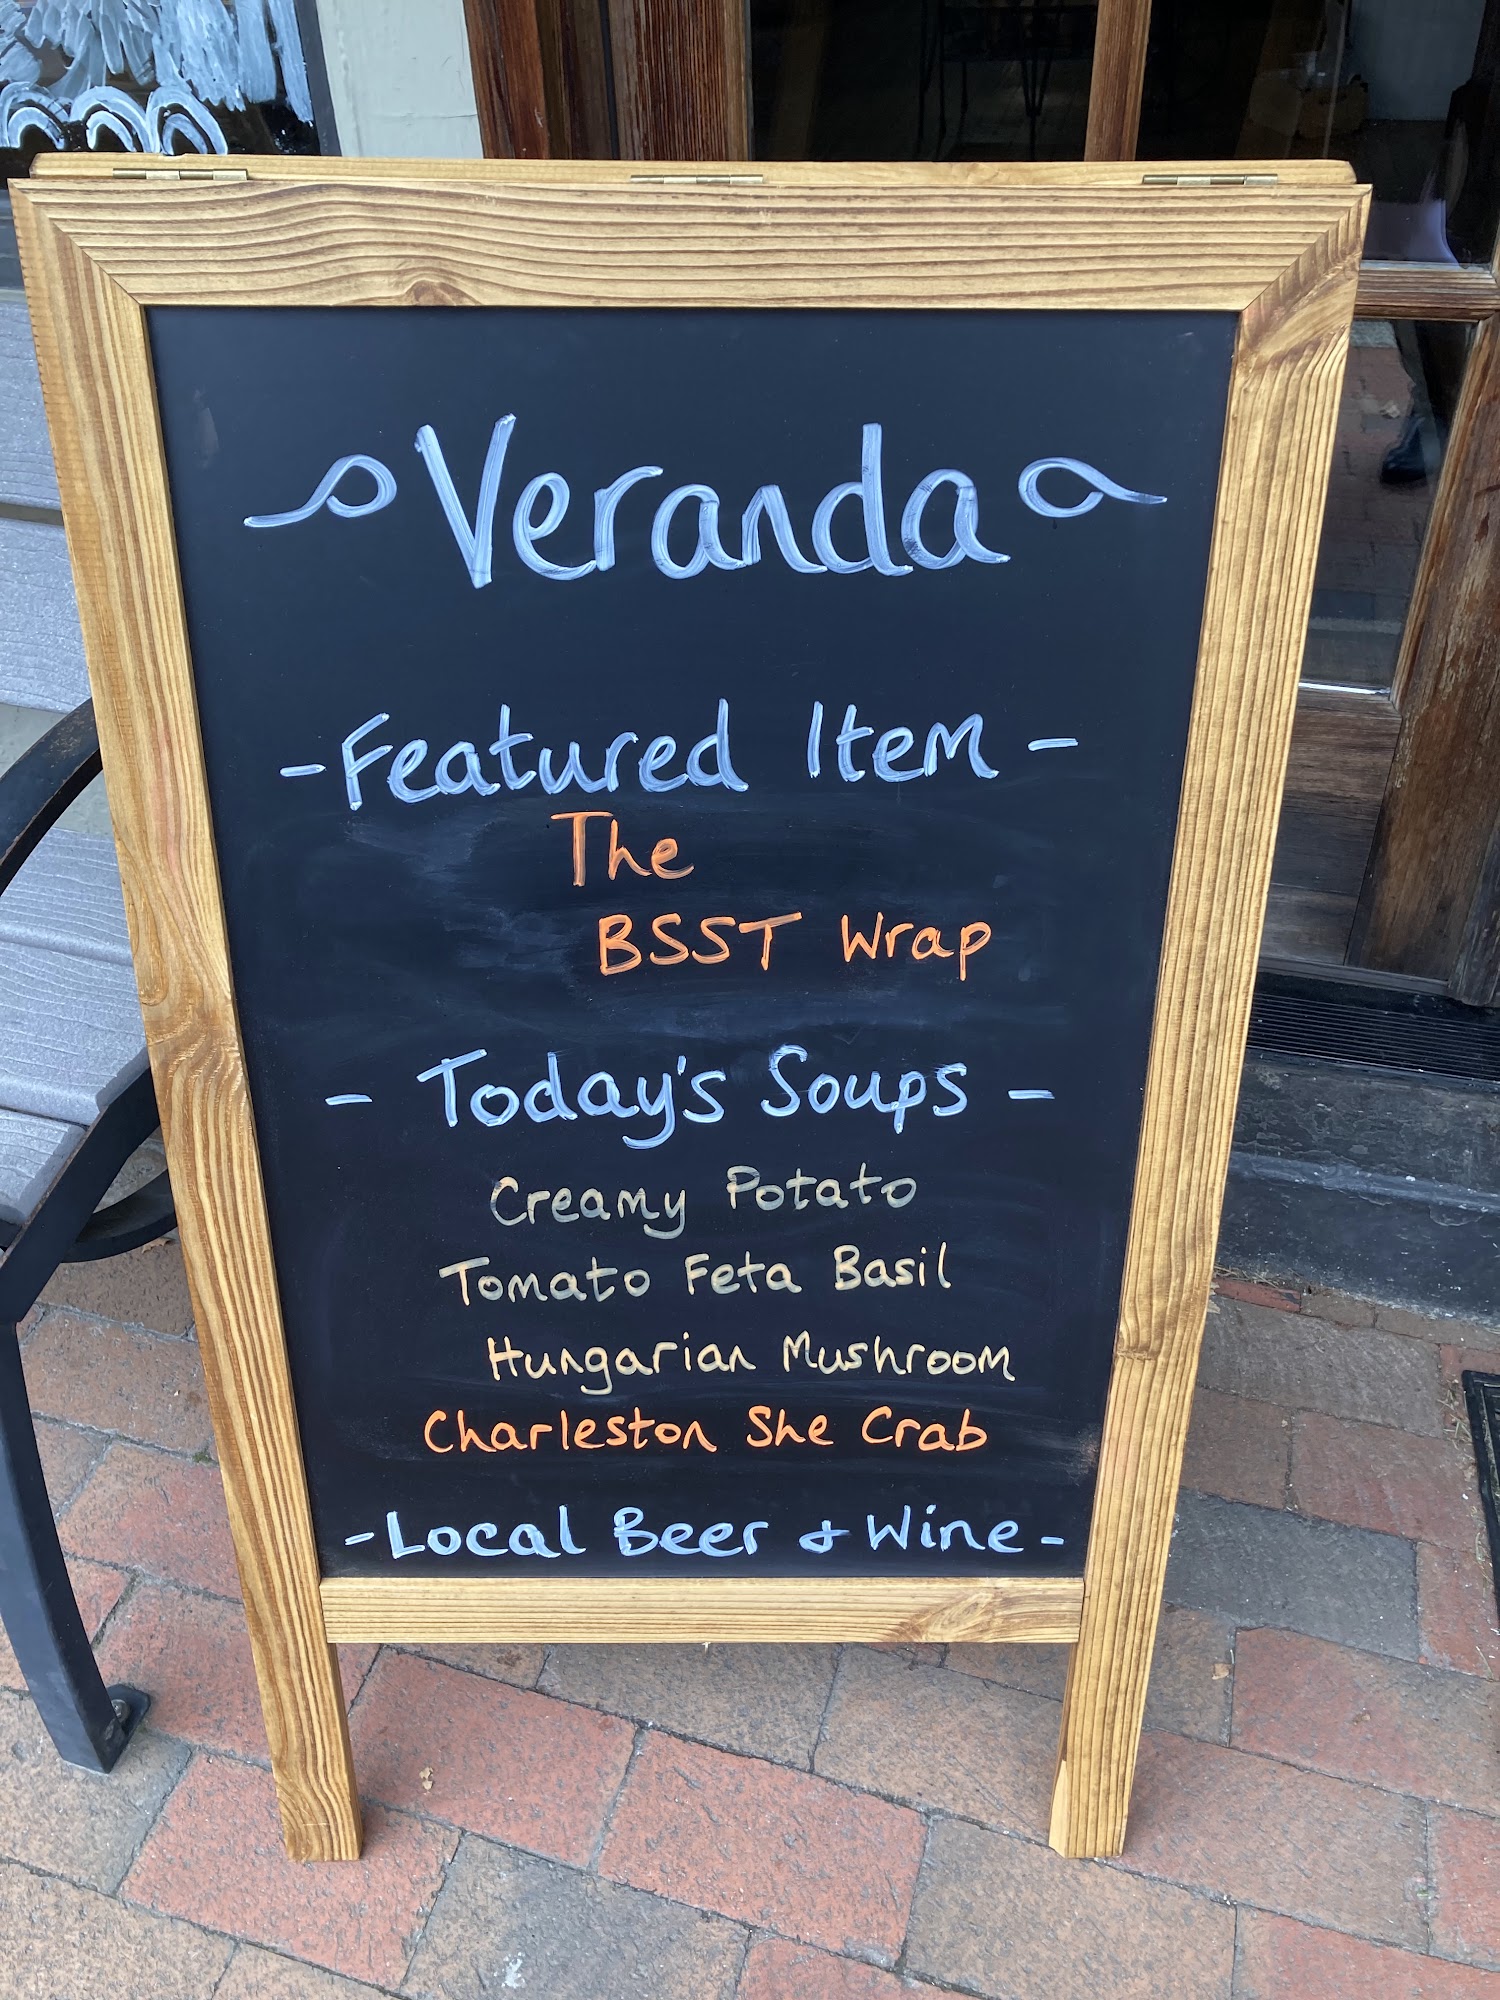 Veranda
- Featured Item -
The
BSST Wrap
- Today's Soups -
Creamy Potato
Tomato Feta Basil
Hungarian Mushroom
Charleston She Crab
- Local Beer & Wine -